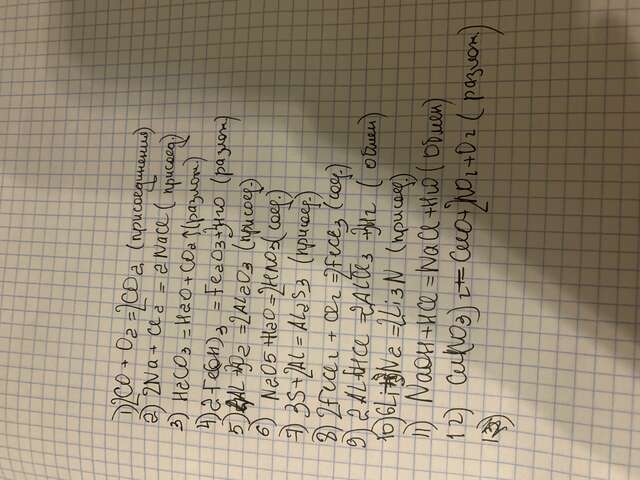 1) 2CO + O2 = 2CO2 (присоединения)
2) 2Na + Cl2 = 2NaCl (присоед.)
3) H2CO3 = H2O + CO2↑ (разлож)
4) 2Fe(OH)3 = Fe2O3 + 3H2O (разлож)
5) 4Al + 3O2 = 2Al2O3 (присоед)
6) N2O5 + H2O = 2HNO3 (соед.)
7) 3S + 2Al = Al2S3 (присоед.)
8) 2FeCl2 + Cl2 = 2FeCl3 (соед.)
9) 2Al + 6HCl = 2AlCl3 + 3H2 (обмен)
10) 6Li + N2 = 2Li3N (присоед)
11) NaOH + HCl = NaCl + H2O (Обмен)
12) Cu(NO3)2 = CuO + 2NO2 + O2 (разлож)
13)